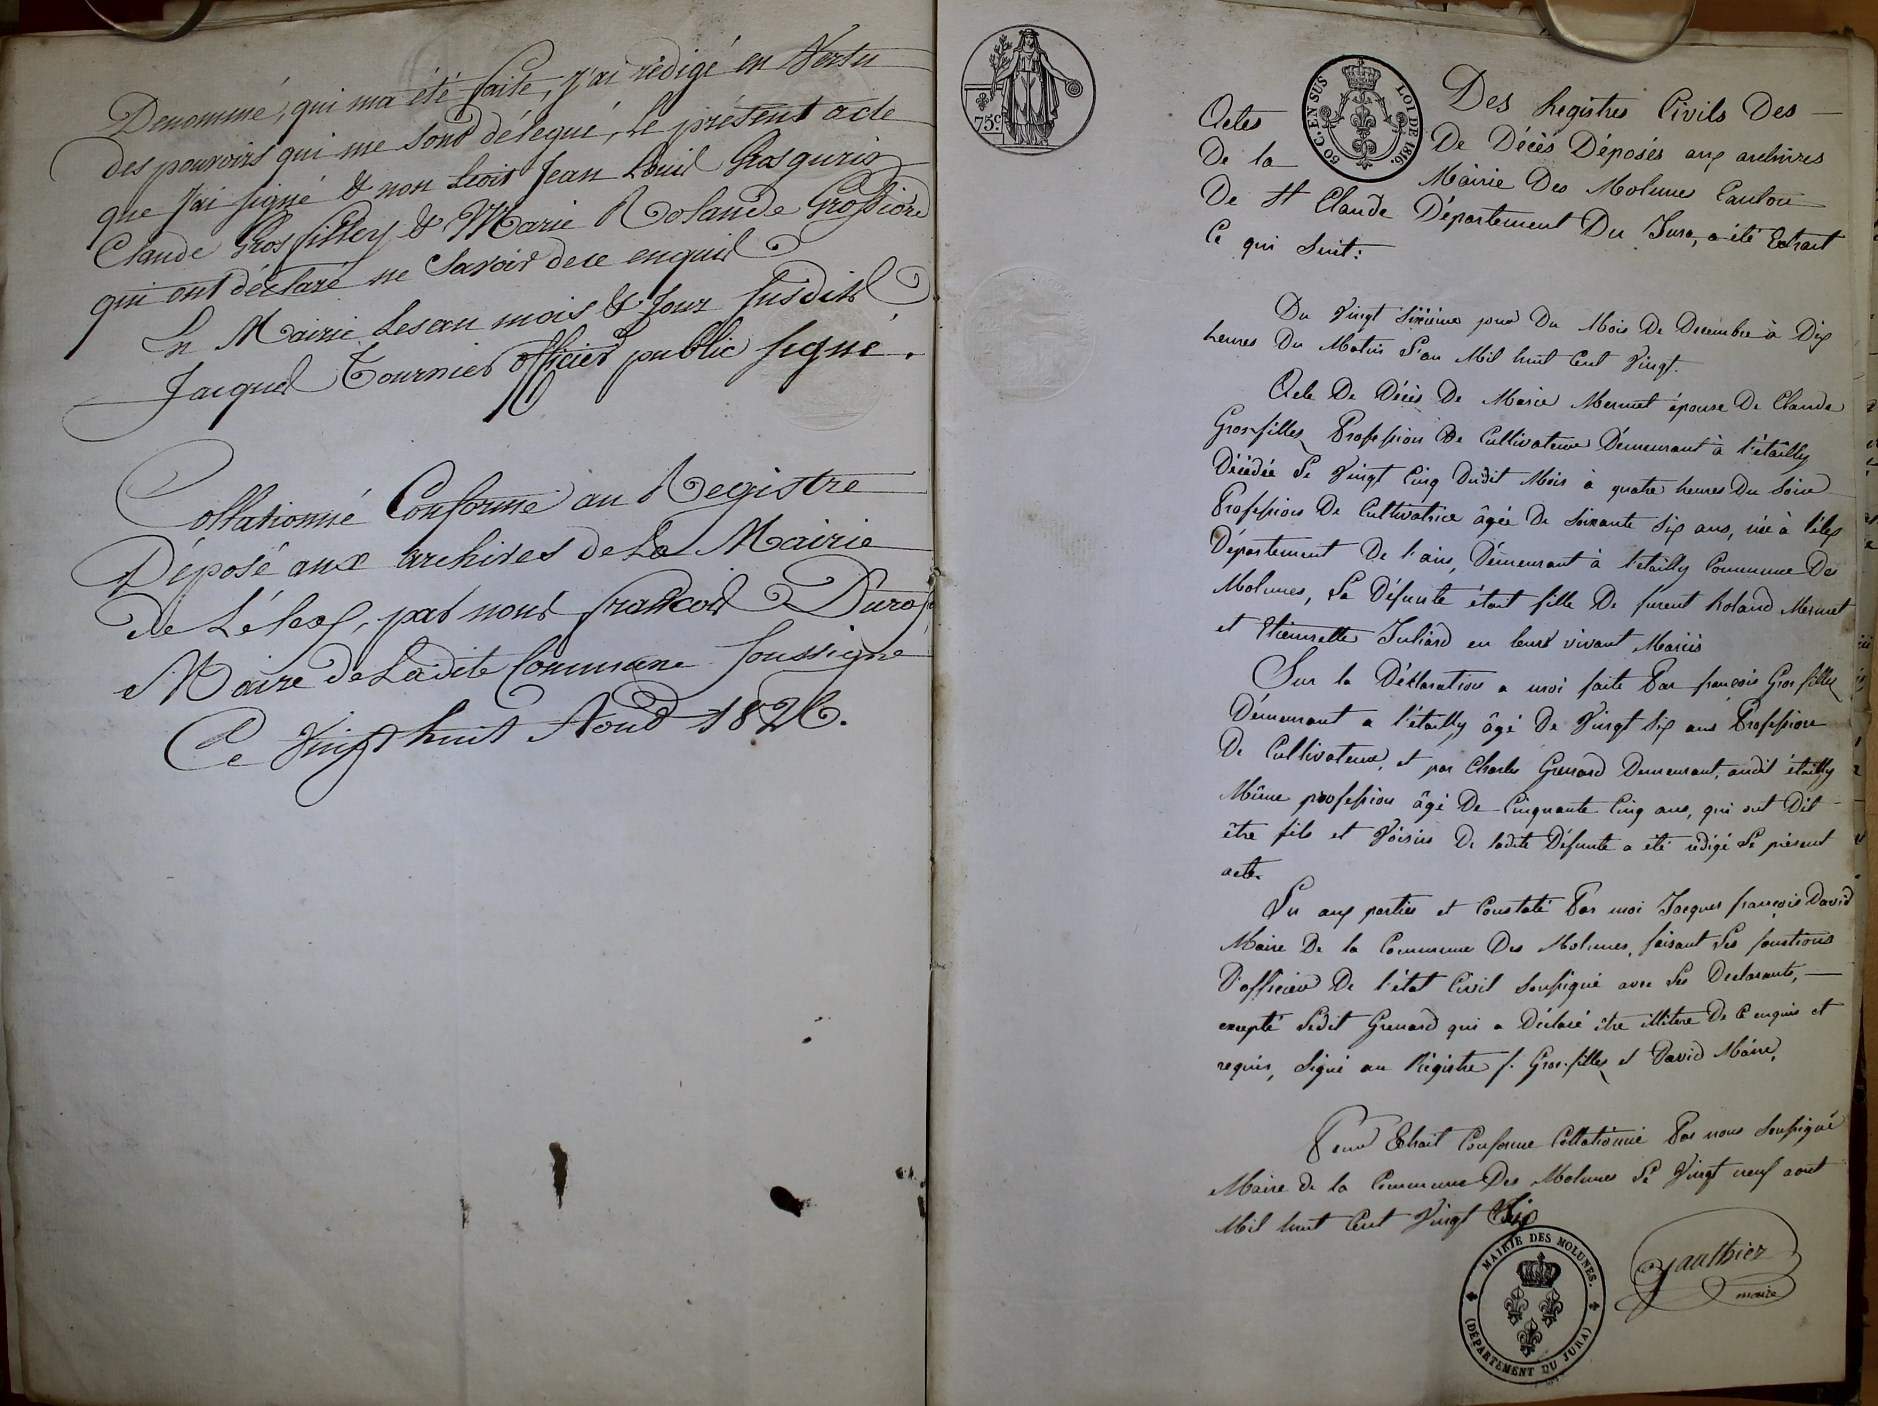 Denommé, qui ma été faite, j'ai rédigé en Vertu
des pouvoirs qui me sont délégué, le présent acte
que j'ai signé & non Jean Louis Grosgurin
Claude Grosfilley & Marie Rolande Grossiord
qui ont déclaré ne Savoir de ce enquis
En Mairie les an mois & Jour susdits
Jacques Tournier officier public signé.
Collationné Conforme au Registre
Déposé aux archives de La Mairie
de Lélex, par nous françois Duraf
Maire de Ladite Commune soussigné
Ce Vingt huit Aoud 1826.
75c.
60 C. EN SUS LOI DE 1816.
Des Registres Civils Des
Actes De Décès Déposés aux archives
De la Mairie Des Molunes Canton
De St Claude Département Du Jura, a été Extrait
Ce qui Suit:
Du Vingt Sixième jour Du Mois De Decembre à Dix
heures Du Matin L'an Mil huit Cent Vingt.
Acte De Décès De Marie Mermet épouse De Claude
Grosfilley Profession De Cultivateur Demeurant à l'étailly
Décédée Le Vingt Cinq Dudit Mois à quatre heures Du Soire
Profession De Cultivatrice âgée De Soixante Six ans, née à lélex
Département De l'ain, Demeurant à l'etailly Commune Des
Molunes, La Défunte étant fille De furent Roland Mermet
et Etiennette Juliard en leurs vivant Mariés
Sur la Déclaration a moi faite Par françois Grosfilley
Demeurant a l'étailly âgé De Vingt Six ans Profession
De Cultivateur, et par Charles Grenard Demeurant, audit étailly
Même profession âgé De Cinquante Cinq ans, qui ont Dit
être fils et Voisin De ladite Défunte a été rédigé Le présent
acte.
Lu aux parties et Constaté Par moi Jacques françois David
Maire De la Commune Des Molunes, faisant Les fonctions
D'officier De l'état Civil Soussigné avec Les Declarants,
excepté Ledit Grenard qui a Déclaré être illitere De ce enquis et
requis, Signé au Régistre f. Grosfilley et David Maire.
Pour Extrait Conforme Collationné Par nous Soussigné
Maire de la Commune Des Molunes Le Vingt neuf aout
Mil huit Cent Vingt Six
Gauthier
maire
MAIRIE DES MOLUNES.
(DÉPARTEMENT DU JURA)